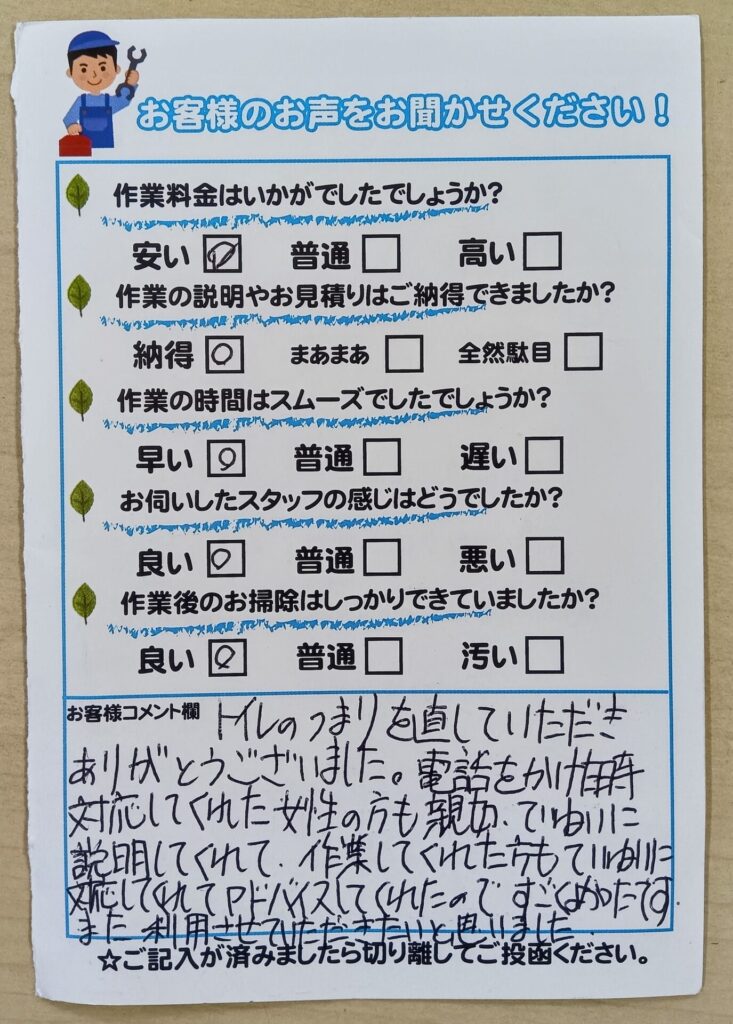 お客様のお声をお聞かせください！
作業料金はいかがでしたでしょうか？
安い 普通 高い
作業の説明やお見積りはご納得できましたか？
納得 まあまあ 全然駄目
作業の時間はスムーズでしたでしょうか？
早い 普通 遅い
お伺いしたスタッフの感じはどうでしたか？
良い 普通 悪い
作業後のお掃除はしっかりできていましたか？
良い 普通 汚い
お客様コメント欄 トイレのつまりを直していただき
ありがとうございました。電話をかけ時
対応してくれた女性の方も親切、ていねいに
説明してくれて、作業してくれた方もていねいに
対応してくれてアドバイスしてくれたので すごく です
また 利用させていただきたいと思いました
☆ご記入が済みましたら切り離してご投函ください。